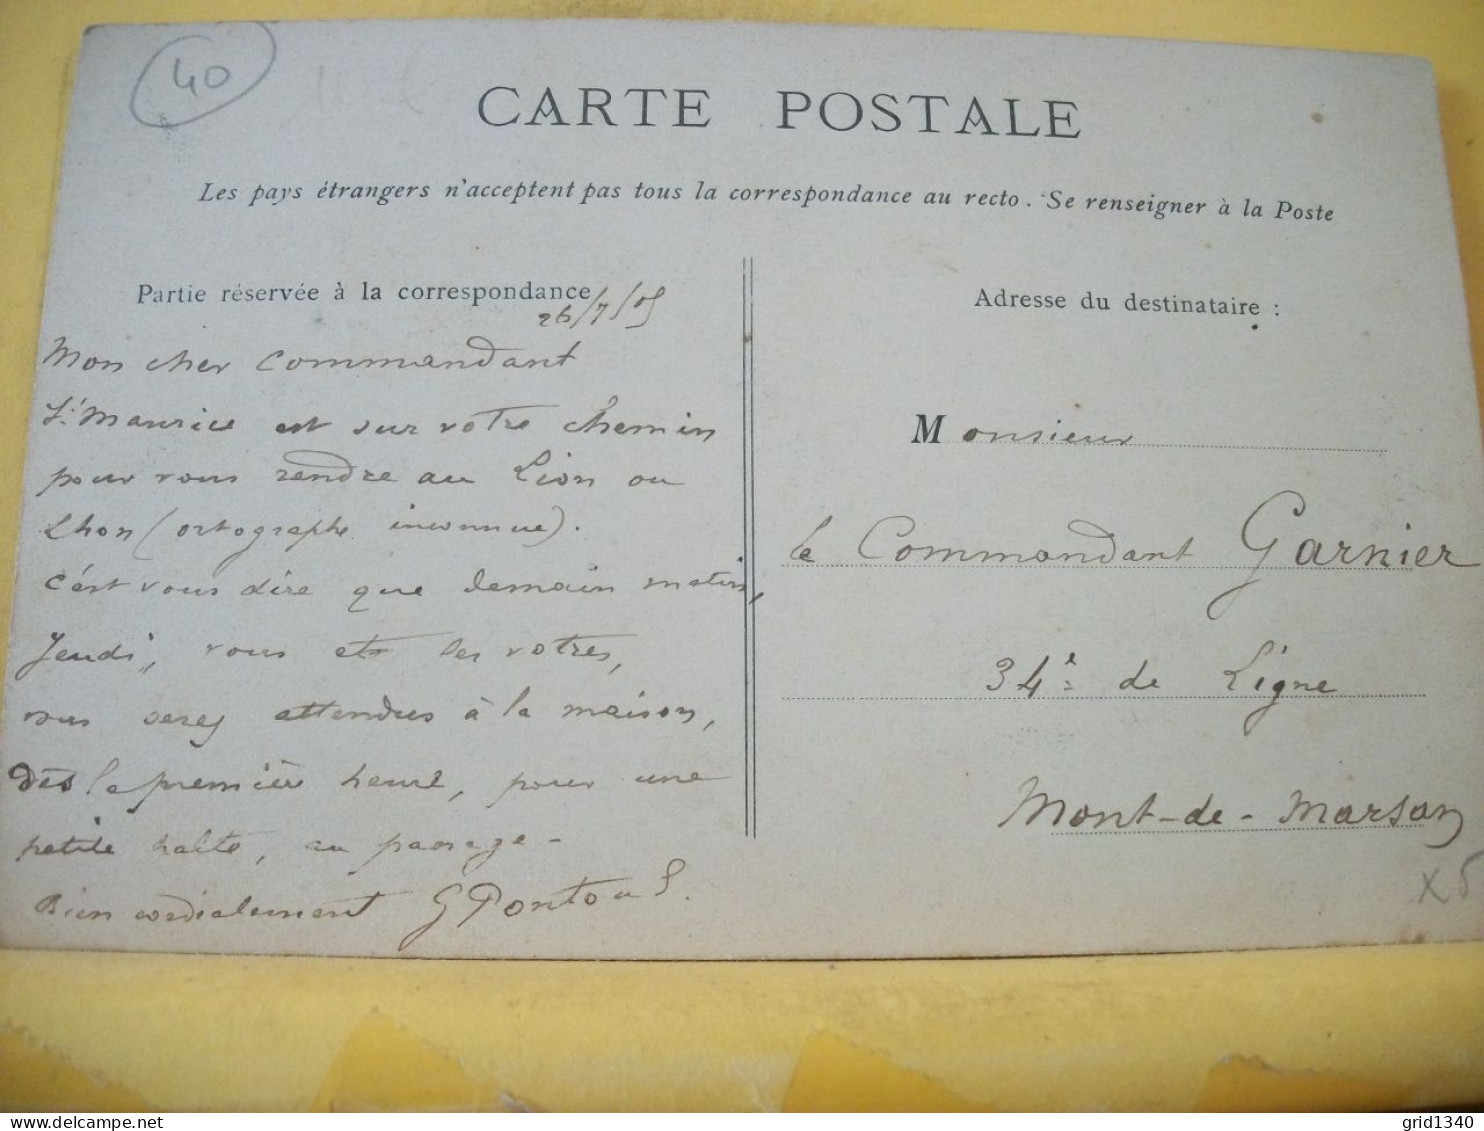 40
CARTE POSTALE
Les pays étrangers n'acceptent pas tous la correspondance au recto. Se renseigner à la Poste
Partie réservée à la correspondance
26/7/05
Mon cher Commandant
St Maurice est sur votre chemin
pour vous rendre au Lion ou
Lhon (ortographe inconnue).
C'est vous dire que demain matin,
Jeudi, vous et les votres,
vous serez attendus à la maison,
dès la première heure, pour une
petite halte, au passage -
Bien cordialement G Pontous.
Adresse du destinataire :
Monsieur
le Commandant Garnier
34e de Ligne
Mont-de-Marsan
x5
grid1340